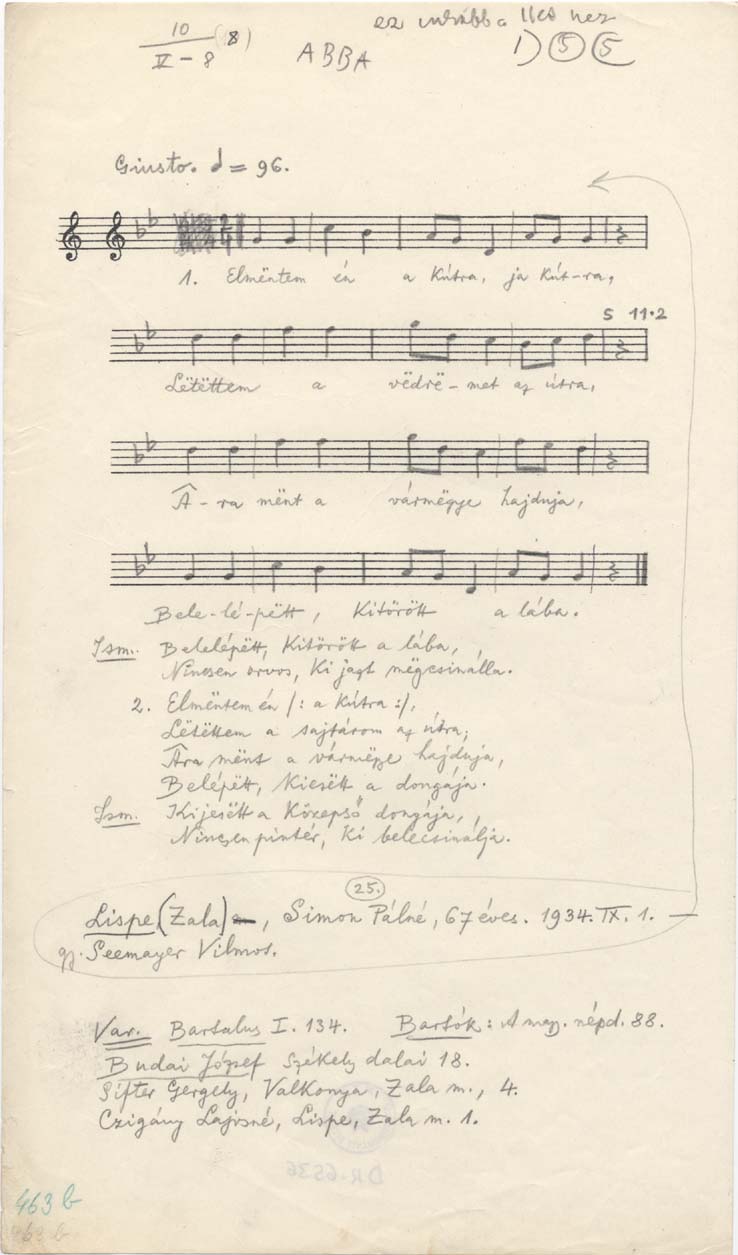 10
IV - 8 (8)
ABBA
ez inkább a
1) 5 5
Giusto. = 96.
1. Elmëntem én a kútra, ja kút-ra,
5 11·2
Lëtëttem a vëdrë-met az útra,
Â-ra mënt a vármëgye hajduja,
Bele-lé-pëtt, kitörött a lába.
Ism. Belelépëtt, kitörött a lába,
Nincsen orvos, ki jazt mëgcsinálla.
2. Elmëntem én /: a kútra :/,
Lëtëttem a sajtárom az útra;
Âra mënt a vármëgye hajduja,
Belépëtt, kiesëtt a dongája.
Ism. Kijesëtt a középső dongája,
Nincsen pintér, ki belecsinálja.
25.
Lispe (Zala), Simon Pálné, 67 éves. 1934. IX. 1. —
gy. Seemayer Vilmos.
Var. Bartalus I. 134. Bartók: A mag. népd. 88.
Budai József Székely dalai 18.
Sifter Gergely, Valkonya, Zala m., 4.
Czigány Lajosné, Lispe, Zala m. 1.
DR-6536
463 b
463 b